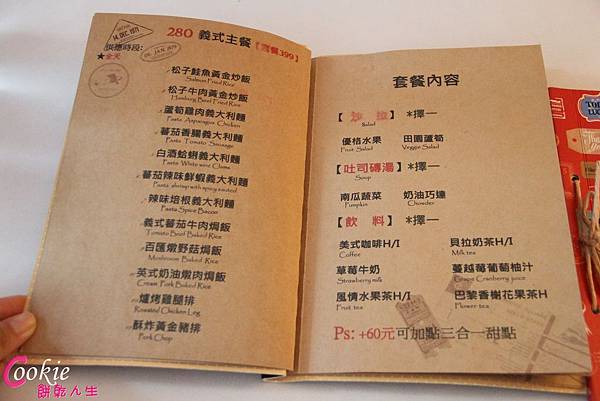 14. DEC. 1971
280 義式主餐【套餐399】
供應時段:
★全天
松子鮭魚黃金炒飯
Salmon Fried Rice
松子牛肉黃金炒飯
Hamburg Beef Fried Rice
蘆筍雞肉義大利麵
Pasta Asparagus Chicken
蕃茄香腸義大利麵
Pasta Tomato Sausage
白酒蛤蜊義大利麵
Pasta White wine Clams
蕃茄辣味鮮蝦義大利麵
Pasta shrimp with spicy sauted
辣味培根義大利麵
Pasta Spice Bacon
義式蕃茄牛肉焗飯
Tomato Beef Baked Rice
百匯燉野菇焗飯
Mushroom Baked Rice
英式奶油燉肉焗飯
Cream Pork Baked Rice
爐烤雞腿排
Roasted Chicken Leg
酥炸黃金豬排
Pork Chop
套餐內容
【沙拉】*擇一
Salad
優格水果 田園蘆筍
Fruit Salad Veggie Salad
【吐司磚湯】*擇一
Soup
南瓜蔬菜 奶油巧達
Pumpkin Chowder
【飲料】*擇一
美式咖啡H/I 貝拉奶茶H/I
Coffee Milk tea
草莓牛奶 蔓越莓葡萄柚汁
Strawberry milk Grape Cranberry juice
風情水果茶H/I 巴黎香榭花果茶H
Fruit tea Flower tea
Ps: +60元可加點三合一甜點
Cookie
餅乾人生